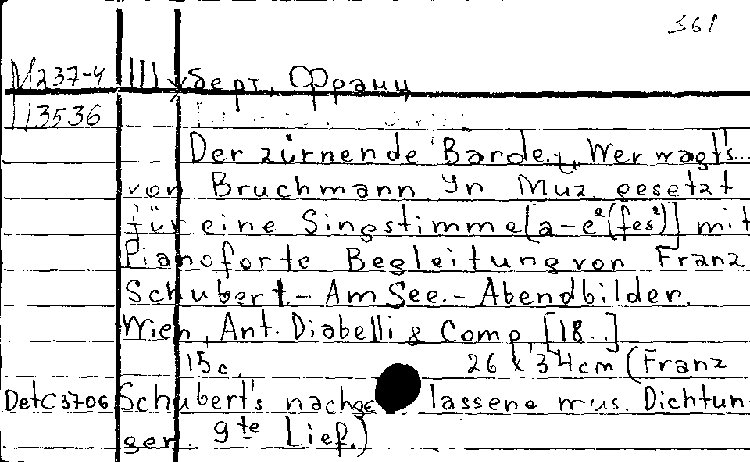 361
M237-4 Шуберт, Франц
113536
Der zürnende Barde., Wer wagt's...
von Bruchmann In Muz gesetzt
für eine Singstimme [a-e²(fes²)] mit
Pianoforte Begleitung von Franz
Schubert.- Am See.- Abendbilder.
Wien, Ant. Diabelli & Comp, [18..]
15c. 26 x 34cm (Franz
Det C 3706 Schubert's nachgelassene mus. Dichtun-
gen. 9te Lief.)